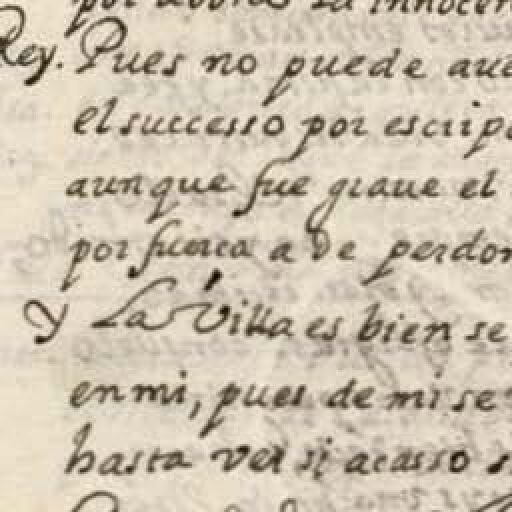 por aora la innocen
Rey. Pues no puede aue
el successo por escrip
aunque fue graue el
por fuerca a de perdon
y La Villa es bien se
en mi, pues de mi se
hasta ver si acasso s